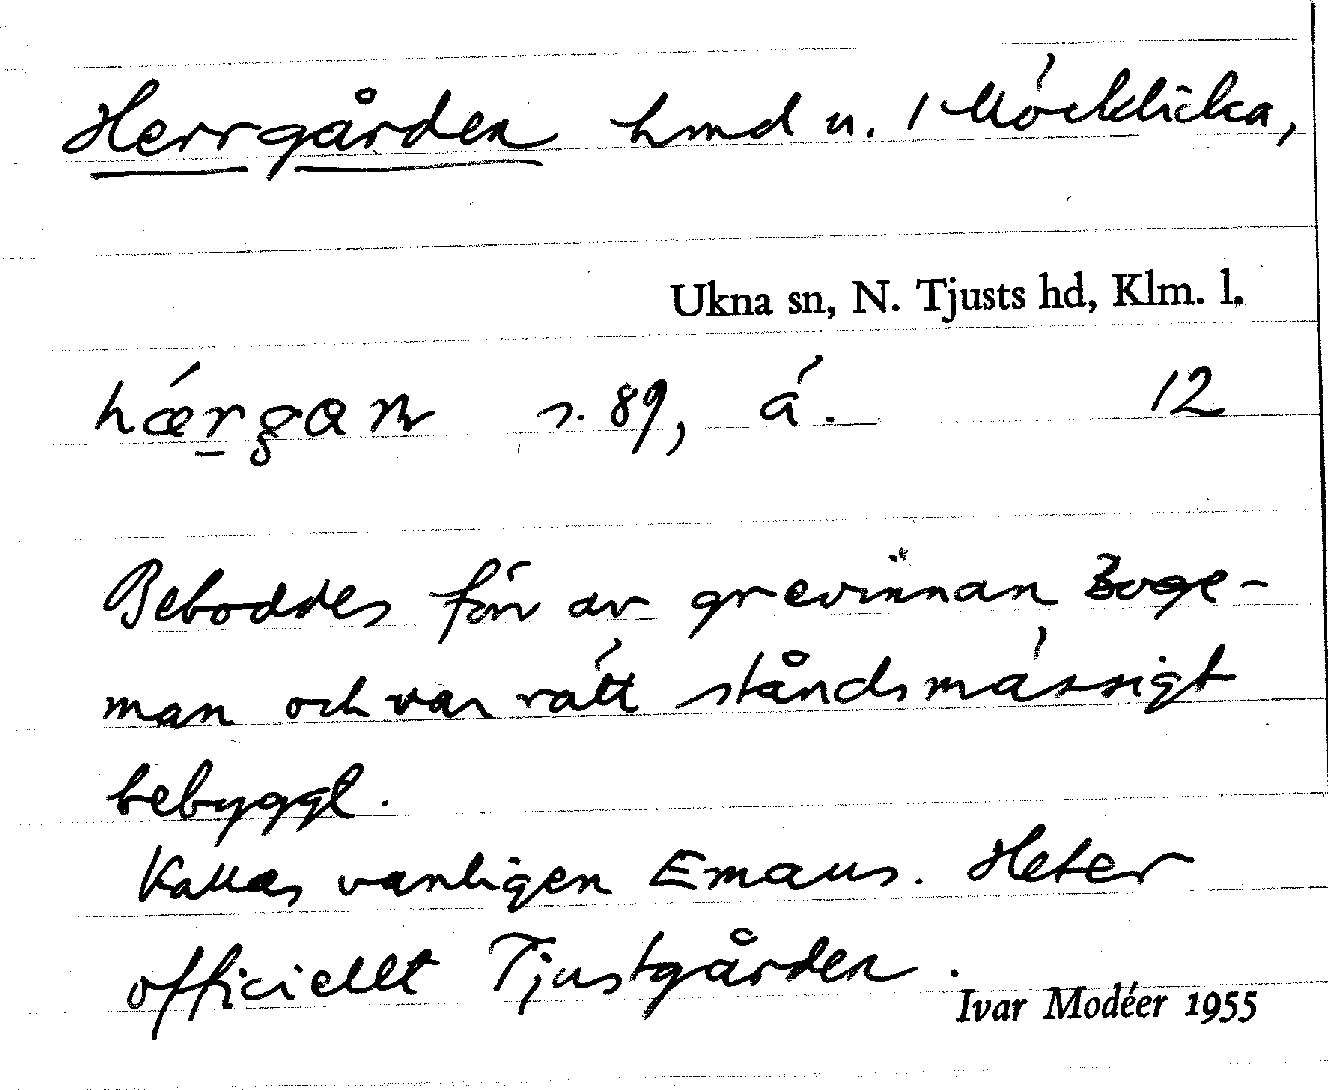 Herrgården hmd u. 1 Möcklicka,
Ukna sn, N. Tjusts hd, Klm. l.
s. 89, á. 12
Beboddes förr av grevinnan Boge-
man och var rätt ståndsmässigt
bebyggt.
Kallas vanligen Emaus. Heter
officiellt Tjustgården.
Ivar Modéer 1955